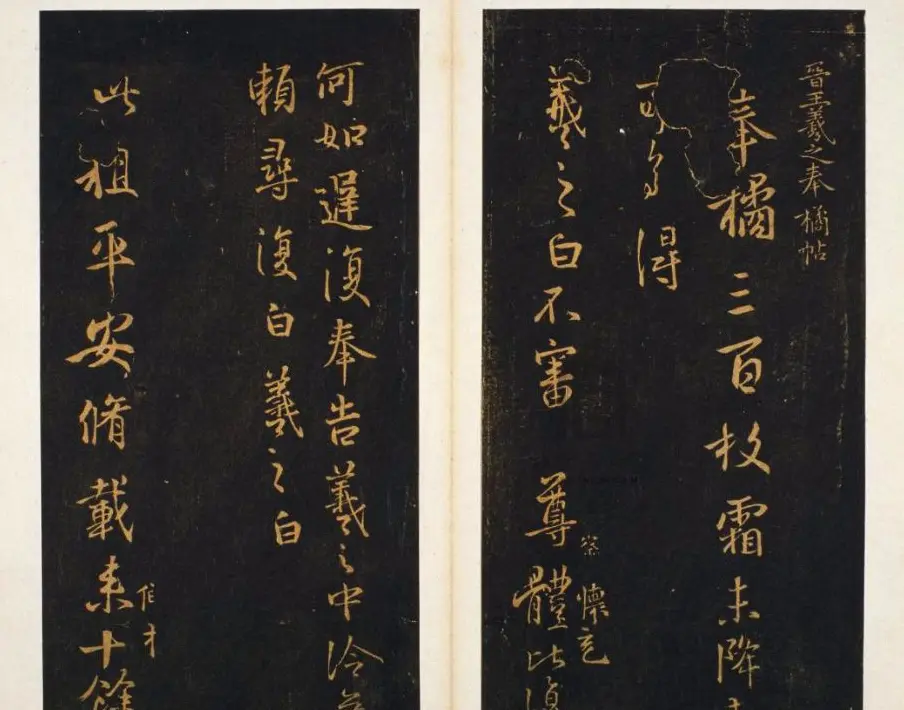 晉王羲之奉橘帖
奉橘三百枚霜未降
可多得
羲之白不審 尊體比復
察 懷充
何如遲復奉告羲之中冷
賴尋復白羲之白
此粗平安脩載来十餘